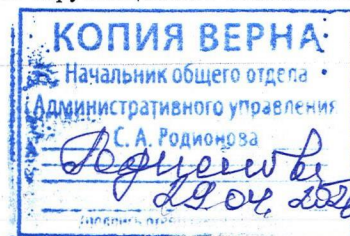 КОПИЯ ВЕРНА
Начальник общего отдела
Административного управления
С. А. Родионова
Родионова
29.04.